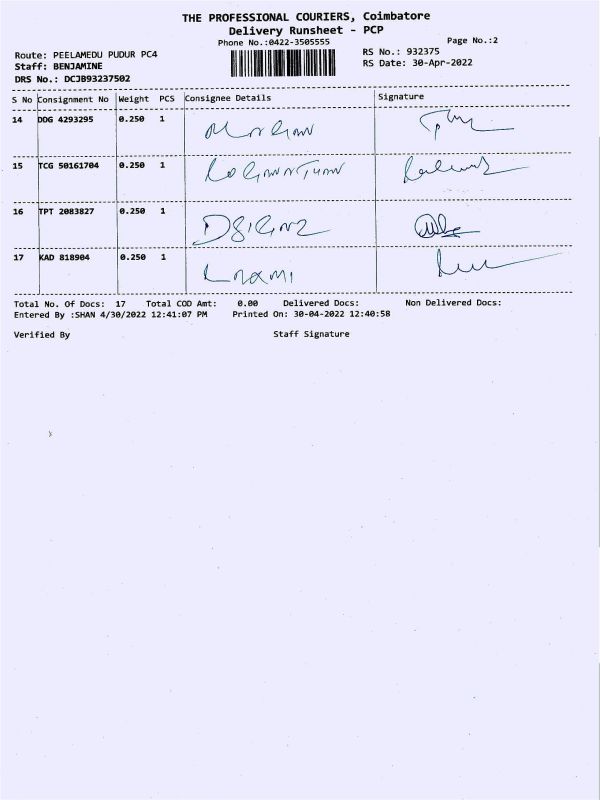 THE PROFESSIONAL COURIERS, Coimbatore
Delivery Runsheet - PCP
Phone No.:0422-3505555
Page No.:2
Route: PEELAMEDU PUDUR PC4
RS No.: 932375
Staff: BENJAMINE
RS Date: 30-Apr-2022
DRS No.: DCJB93237502
S No Consignment No Weight PCS Consignee Details Signature
14 DDG 4293295 0.250 1
15 TCG 50161704 0.250 1
16 TPT 2083827 0.250 1
17 KAD 818904 0.250 1
Total No. Of Docs: 17 Total COD Amt: 0.00 Delivered Docs: Non Delivered Docs:
Entered By :SHAN 4/30/2022 12:41:07 PM Printed On: 30-04-2022 12:40:58
Verified By Staff Signature